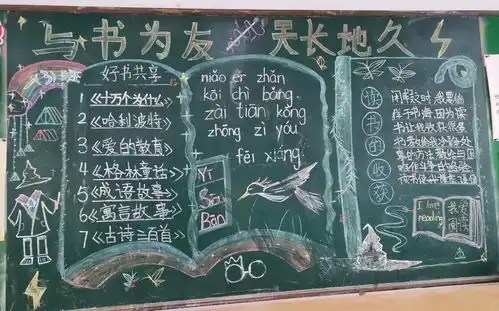 与书为友 天长地久
好书共享
1《十万个为什么》
2《哈利波特》
3《爱的教育》
4《格林童话》
5《成语故事》
6《寓言故事》
7《古诗三百首》
niǎo er zhǎn
kāi chì bǎng
zài tiān kōng
zhōng zì yóu
fēi xiáng
Yī
Sān
Bān
读书的收获
闲暇时,我要
书让我收获很多
I love
reading
我爱
阅读